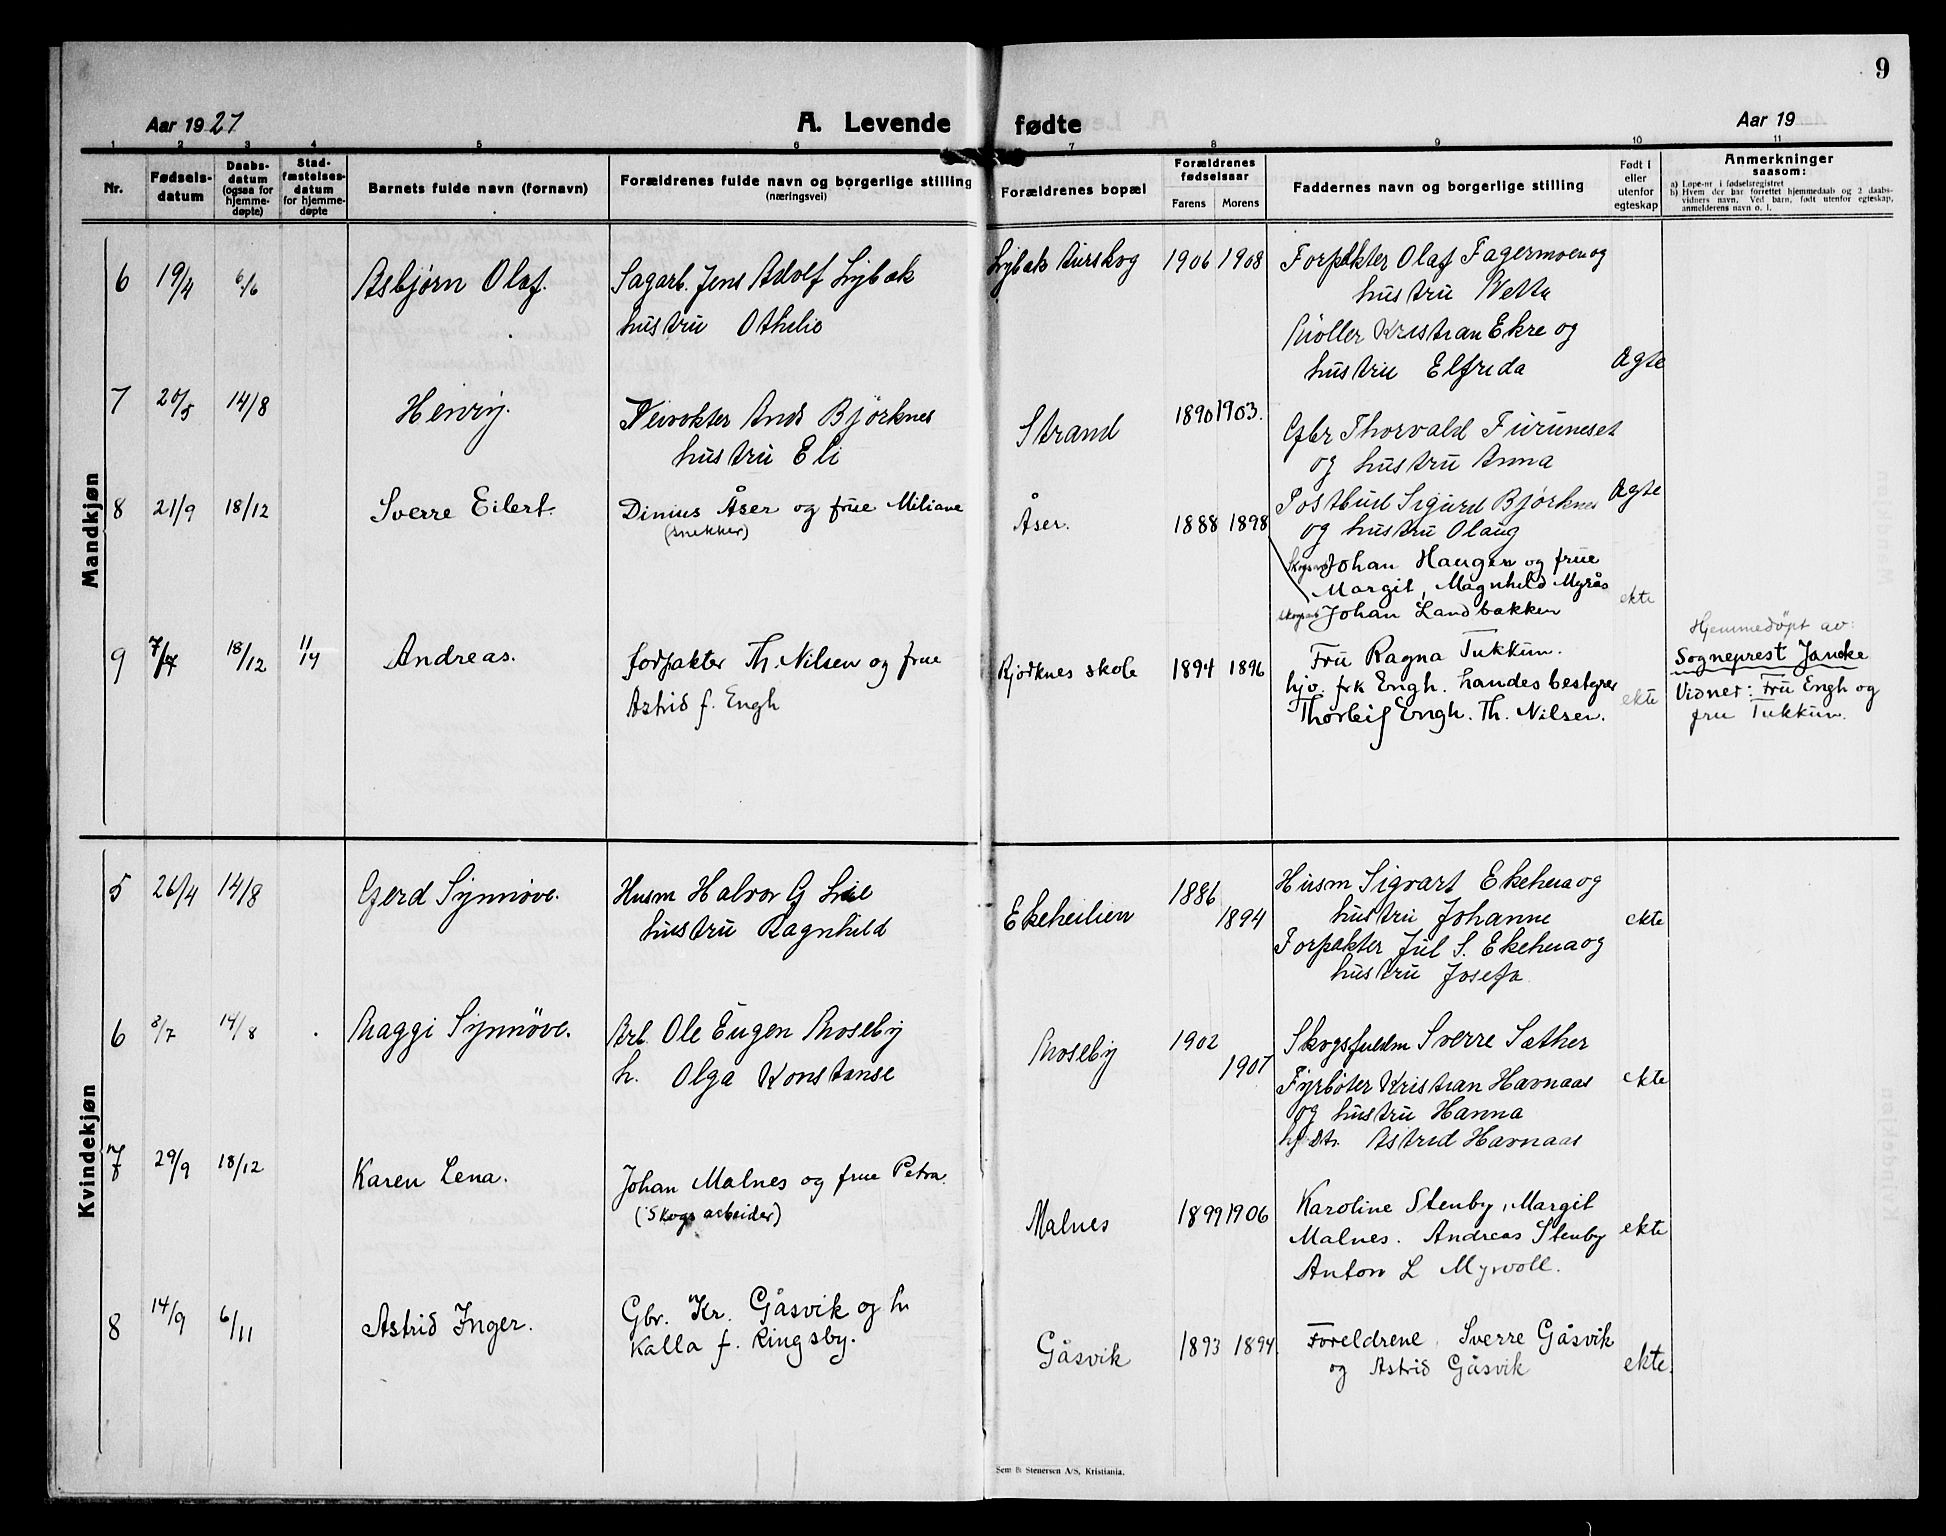 9
Aar 1927
A. Levende fødte
Aar 19
1 2 3 4 5 6 7 8 9 10 11
Nr.
Fødsels-
datum
Daabs-
datum
(ogsaa for
hjemme-
døpte)
Stad-
fæstelses-
datum
for hjemme-
døpte
Barnets fulde navn (fornavn)
Forældrenes fulde navn og borgerlige stilling
(næringsvei)
Forældrenes bopæl
Forældrenes
fødselsaar
Farens Morens
Faddernes navn og borgerlige stilling
Født i
eller
utenfor
egteskap
Anmerkninger
saasom:
a) Løpe-nr i fødselsregistret
b) Hvem der har forrettet hjemmedaab og 2 daabs-
vidners navn. Ved barn, født utenfor egteskap,
anmelderens navn o. l.
Mandkjøn
6 19/4 6/6 Asbjørn Olaf.
Sagarb. Jens Adolf Lybak
hustru Othelie
Lybak Aurskog 1906 1908
Forpakter Olaf Fagermoen og
hustru
Møller Kristian Ekre og
hustru Elfrida
Ægte
7 20/5 14/8 Henry.
Veivokter Ands Bjørknes
hustru Eli
Strand 1890 1903.
Gbr Thorvald Furuneset
og hustru Anna
Postbud Sigurd Bjørknes
og hustru Olaug
Ægte
8 21/9 18/12 Sverre Eilert.
Dinius Åser og frue Miliane
(snekker)
Åser. 1888 1898
Johan Haugen og frue
Margit, Magnhild Myrås
Johan Landbakken
ekte
9 7/7 18/12 Andreas.
forpakter Th. Nilsen og frue
Astrid f. Engh
Bjørknes skole 1894 1896
Fru Ragna Tukkun.
frk Engh. handesbestyrer
Thorleif Engh. Th. Nilsen.
ekte
Hjemmedöpt av:
Sogneprest Jancke
Vidner: Fru Engh og
fru Tukkun.
Kvindekjøn
5 26/4 14/8 Gjerd Synnøve.
Husm Halvor G Lie
hustru Ragnhild
Ekeheilien 1886 1894
Husm Sigvart Ekeheia og
hustru Johanne
Forpakter Jul S. Ekeheia og
hustru Josefa
ekte
6 8/7 14/8 Maggi Synnöve.
Arb. Ole Eugen Moseby
h. Olga Konstanse
Moseby 1902 1907
Skogsfuldm Sverre Sæther
Fyrböter Kristian Havnaas
og hustru Hanna
Astrid Havnaas
ekte
7 29/9 18/12 Karen Lena.
Johan Malnes og frue Petra.
(Skogsarbeider)
Malnes 1899 1906
Karoline Stenby, Margit
Malnes. Andreas Stenby
Anton L Myrvoll.
ekte
8 14/9 6/11 Astrid Inger.
Gbr. Kr. Gåsvik og h.
Kalla f. Ringsby.
Gåsvik 1893 1894
Foreldrene, Sverre Gåsvik
og Astrid Gåsvik
ekte.
Sem & Stenersen A/S, Kristiania.